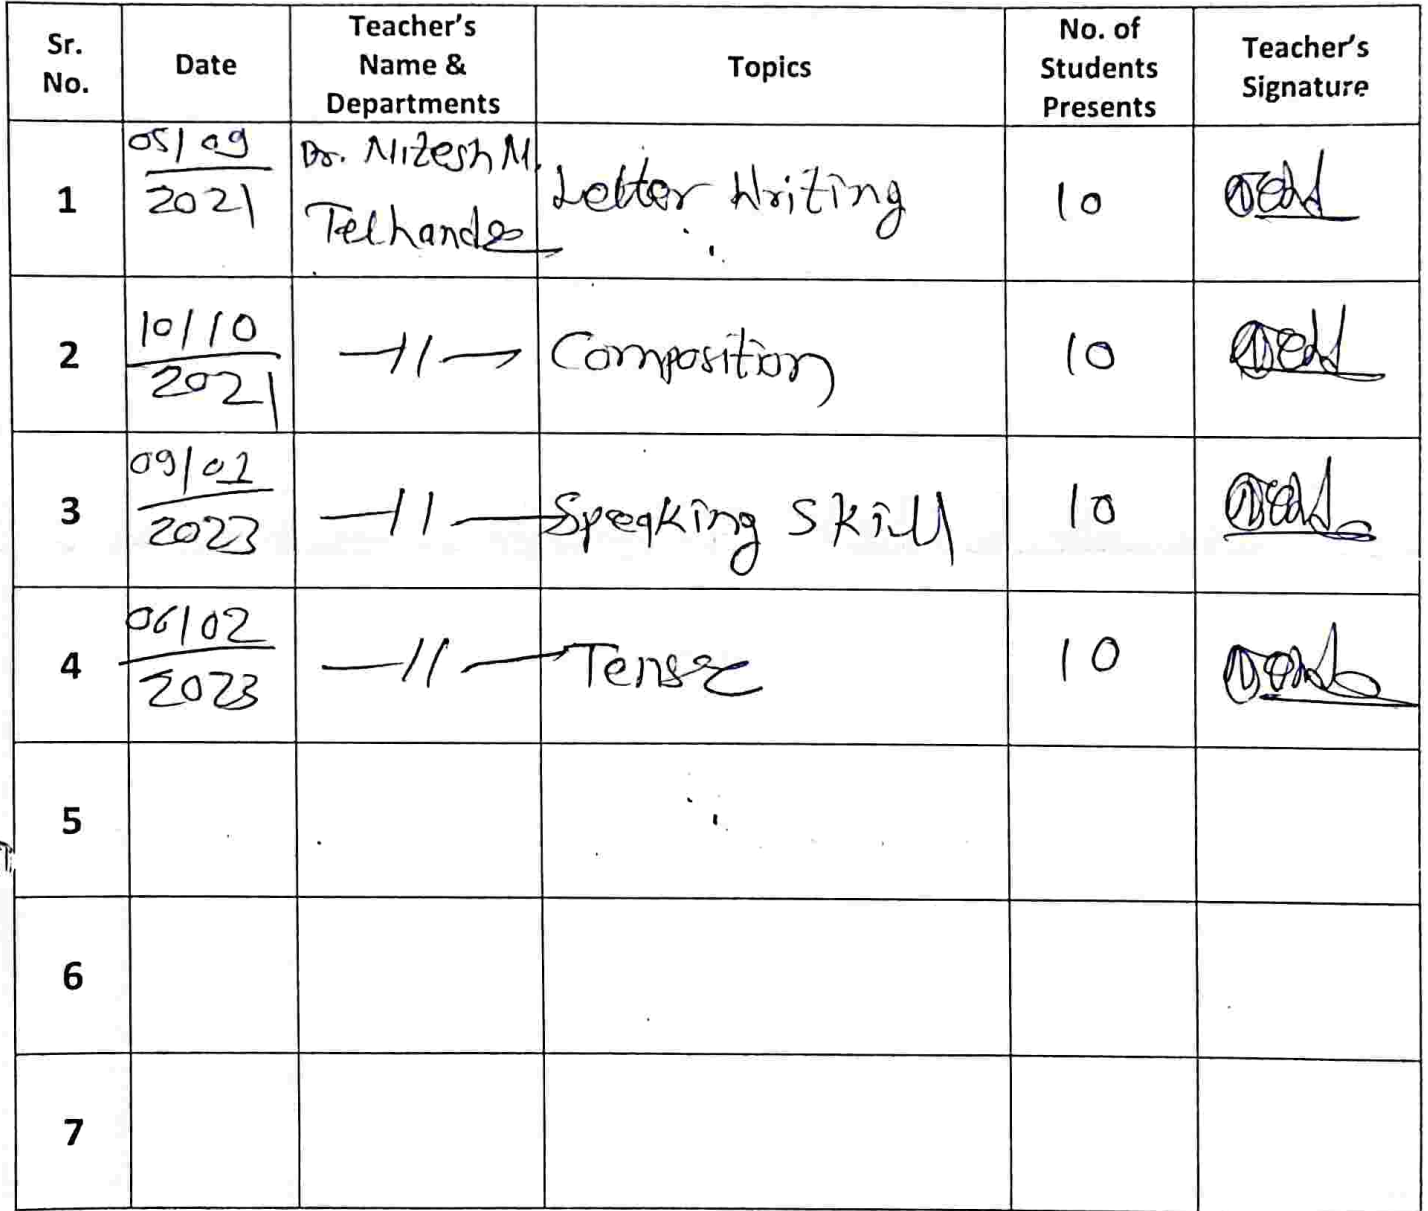 Sr. No. Date Teacher's Name & Departments Topics No. of Students Presents Teacher's Signature
1 05/09/2021 Dr. Nitesh M. Telhande Letter Writing 10
2 10/10/2021 —//— Composition 10
3 09/01/2023 —//— Speaking Skill 10
4 06/02/2023 —//— Tense 10
5
6
7